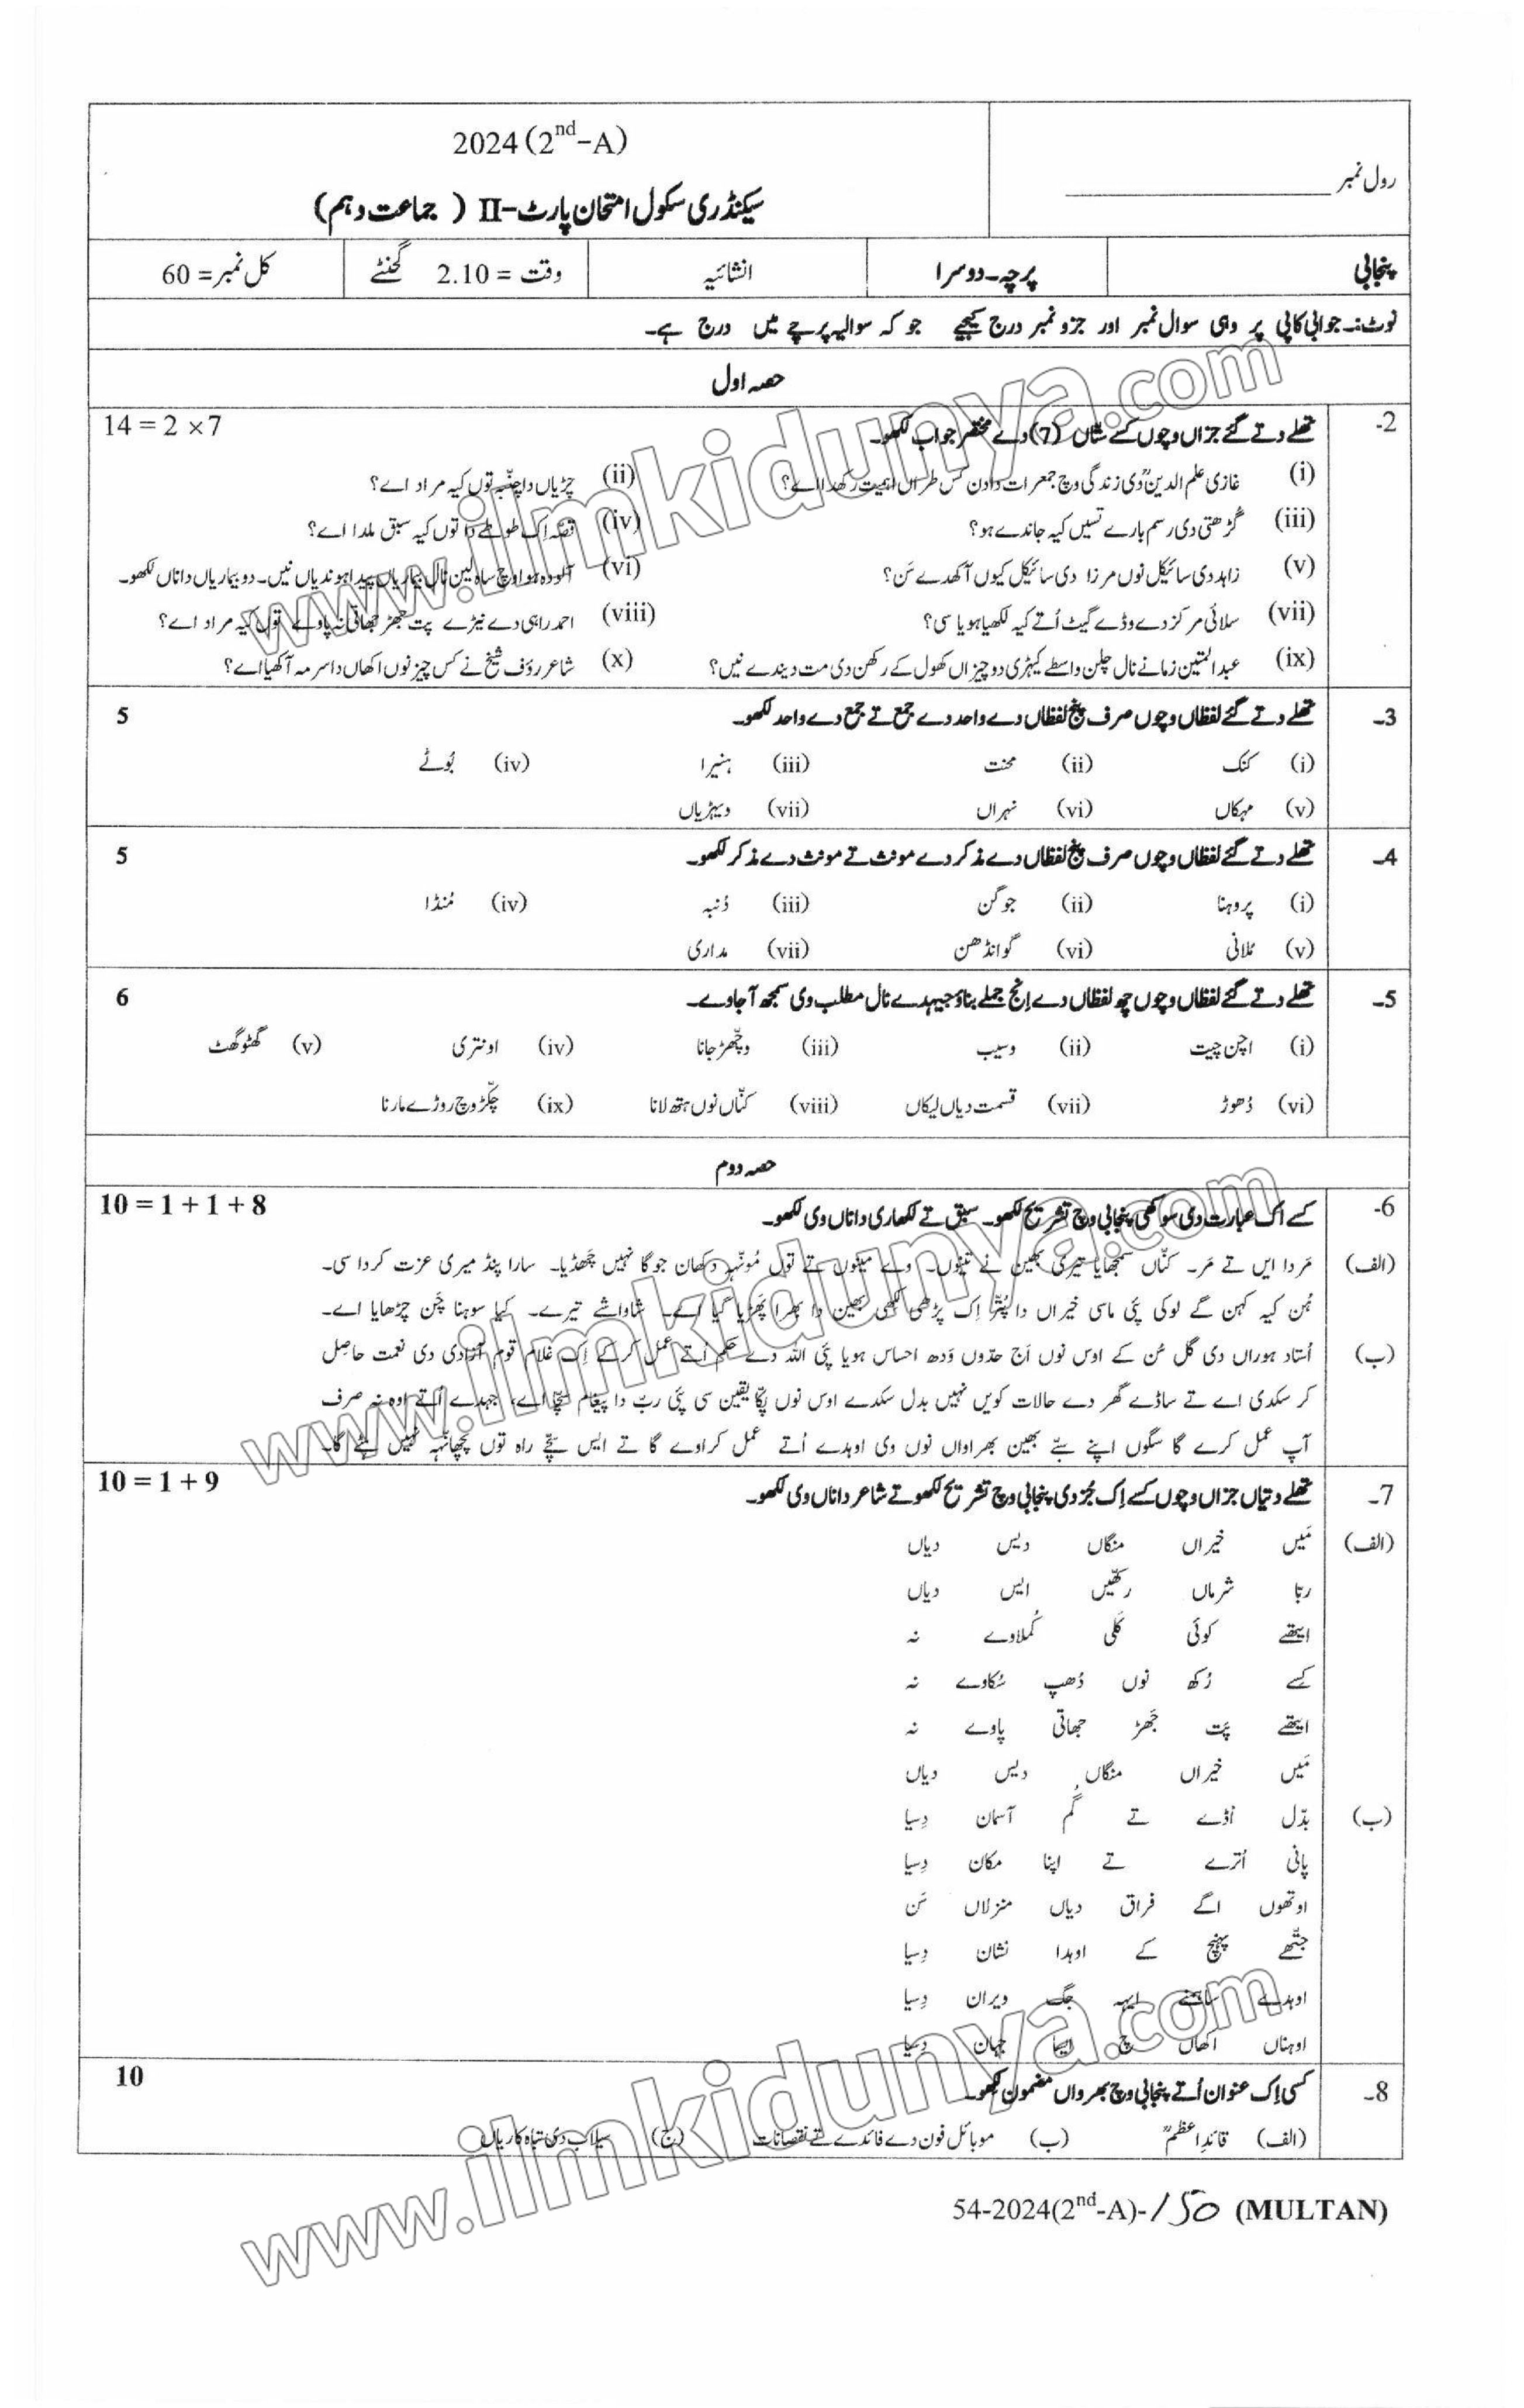 2024 (2nd-A)
رول نمبر
سیکنڈری سکول امتحان پارٹ-II ( جماعت دہم)
پنجابی پرچہ-دوسرا انشائیہ وقت = 2.10 گھنٹے کل نمبر= 60
نوٹ:- جوابی کاپی پر وہی سوال نمبر اور جزو نمبر درج کیجیے جو کہ سوالیہ پرچے میں درج ہے۔
حصہ اول
2- تھلے دتے گئے جزاں وچوں کسے ستاں (7) دے مختصر جواب لکھو۔ 14 = 2 × 7
(i) غازی علم الدینؒ دی زندگی وچ جمعرات دا دن کس طراں اہمیت رکھدا اے؟ (ii) چڑیاں دا چنبہ توں کیہ مراد اے؟
(iii) گڑھتی دی رسم بارے تسیں کیہ جاندے ہو؟ (iv) قصہ اِک طوطے دا توں کیہ سبق ملدا اے؟
(v) زاہد دی سائیکل نوں مرزا دی سائیکل کیوں آکھدے سَن؟ (vi) آلودہ ہوا وچ ساہ لین نال بیماریاں پیدا ہوندیاں نیں۔ دو بیماریاں دا ناں لکھو۔
(vii) سلائی مرکز دے وڈے گیٹ اُتے کیہ لکھیا ہویا سی؟ (viii) احمد راہی دے نیڑے پت جھڑ جھاتی نہ پاوے توں کیہ مراد اے؟
(ix) عبد المتین زمانے نال چلن واسطے کیہڑی دو چیزاں کھول کے رکھن دی مت دیندے نیں؟ (x) شاعر رؤف شیخ نے کس چیز نوں اکھاں دا سرمہ آکھیا اے؟
3- تھلے دتے گئے لفظاں وچوں صرف پنج لفظاں دے واحد دے جمع تے جمع دے واحد لکھو۔ 5
(i) کنک (ii) محنت (iii) ہنیرا (iv) بُوٹے
(v) مہکاں (vi) نہراں (vii) دیہڑیاں
4- تھلے دتے گئے لفظاں وچوں صرف پنج لفظاں دے مذکر دے مونث تے مونث دے مذکر لکھو۔ 5
(i) پروہنا (ii) جوگن (iii) دُنبہ (iv) مُنڈا
(v) مُلانی (vi) گوانڈھن (vii) مداری
5- تھلے دتے گئے لفظاں وچوں چھ لفظاں دے اِنج جملے بناؤ جیہدے نال مطلب وی سمجھ آ جاوے۔ 6
(i) اچن چیت (ii) وسیب (iii) وچھڑ جانا (iv) اونتری (v) گھٹو گھٹ
(vi) دُھوڑ (vii) قسمت دیاں لیکاں (viii) کنّاں نوں ہتھ لانا (ix) چکّڑ وچ روڑے مارنا
حصہ دوم
6- کسے اک عبارت دی سوکھی پنجابی وچ تشریح لکھو۔ سبق تے لکھاری دا ناں وی لکھو۔ 10 = 1 + 1 + 8
(الف) مَردا ایں تے مَر۔ کنّاں سمجھایا تیری بھین نے تینوں۔ وے مینوں تے توں مُونہہ وکھان جوگا نہیں چھڈیا۔ سارا پنڈ میری عزت کردا سی۔
ہُن کیہ کہن گے لوکی پئی ماسی خیراں دا پُتّر اِک پڑھی لکھی بھین دا بھرا پھَڑیا گیا اے۔ شاواشے تیرے۔ کیا سوہنا چَن چڑھایا اے۔
(ب) اُستاد ہوراں دی گل سُن کے اوس نوں اَج حدّوں وَدھ احساس ہویا پئی اللہ دے حکم اُتے عمل کر کے اِک غلام قوم آزادی دی نعمت حاصِل
کر سکدی اے تے ساڈے گھر دے حالات کویں نہیں بدل سکدے اوس نوں پکّا یقین سی پئی ربّ دا پیغام سچّا اے، جیہدے اُتے اوہ نہ صرف
آپ عمل کرے گا سگوں اپنے سبّے بھین بھراواں نوں وی اوہدے اُتے عمل کراوے گا تے ایس سچّے راہ توں پچھانہہ نہیں ہٹے گا۔
7- تھلے دتیاں جزاں وچوں کسے اِک جُز دی پنجابی وچ تشریح لکھو تے شاعر دا ناں وی لکھو۔ 10 = 1 + 9
(الف) مَیں خیراں منگاں دیس دیاں
ربّا شرماں رکھّیں ایس دیاں
ایتھے کوئی کَلی کُملاوے نہ
کِسے رُکھ نوں دُھپ سُکاوے نہ
ایتھے پَت جھَڑ جھاتی پاوے نہ
مَیں خیراں منگاں دیس دیاں
(ب) بدّل اُڈے تے گُم آسمان دِسیا
پانی اُترے تے اپنا مکان دِسیا
اوتھوں اگے فراق دیاں منزلاں سَن
جتّھے پہنچ کے اوہدا نشان دِسیا
اوہدے سامنے ایہہ جگ ویران دِسیا
اوہناں اکھاں چ ایسا جہان دِسیا
8- کسی اِک عنوان اُتے پنجابی وچ بھرواں مضمون لکھو۔ 10
(الف) قائدِاعظمؒ (ب) موبائل فون دے فائدے تے نقصانات (ج) سیلاب دی تباہ کاریاں
54-2024(2nd-A)-150 (MULTAN)
www.ilmkidunya.com
www.ilmkidunya.com
www.ilmkidunya.com